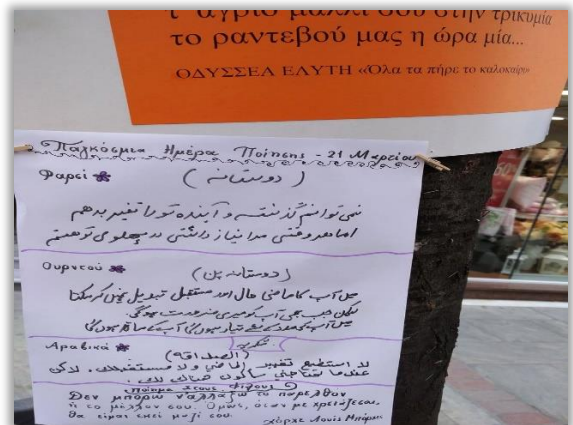 τ' άγριο μαλλί σου στην τρικυμία
το ραντεβού μας η ώρα μία...
ΟΔΥΣΣΕΑ ΕΛΥΤΗ «Όλα τα πήρε το καλοκαίρι»
Παγκόσμια Ημέρα Ποίησης - 21 Μαρτίου
Φαρσί
(دوستانه)
نمی توانم گذشته و آینده تو را تغییر بدهم
اما هر وقتی مرا نیاز داشتی در پهلوی تو هستم
Ουρντού
(دوستانہ پن)
میں آپ کا ماضی حال اور مستقبل تبدیل نہیں کر سکتا
لیکن جب بھی آپ کو میری ضرورت ہوگی
میں آپ کی مدد کے لئے تیار ہوں گا آپ کے ساتھ ہوں گا
Αραβικά
(الصداقة)
لا استطيع تغيير الماضي ولا مستقبلك. لاكن
عندما تحتاجني سأكون هنالك
Ποίημα στους φίλους
Δεν μπορώ ν'αλλάξω το παρελθόν
ή το μέλλον σου. Όμως, όταν με χρειάζεσαι,
θα είμαι εκεί μαζί σου.
Χόρχε Λουίς Μπόρχες